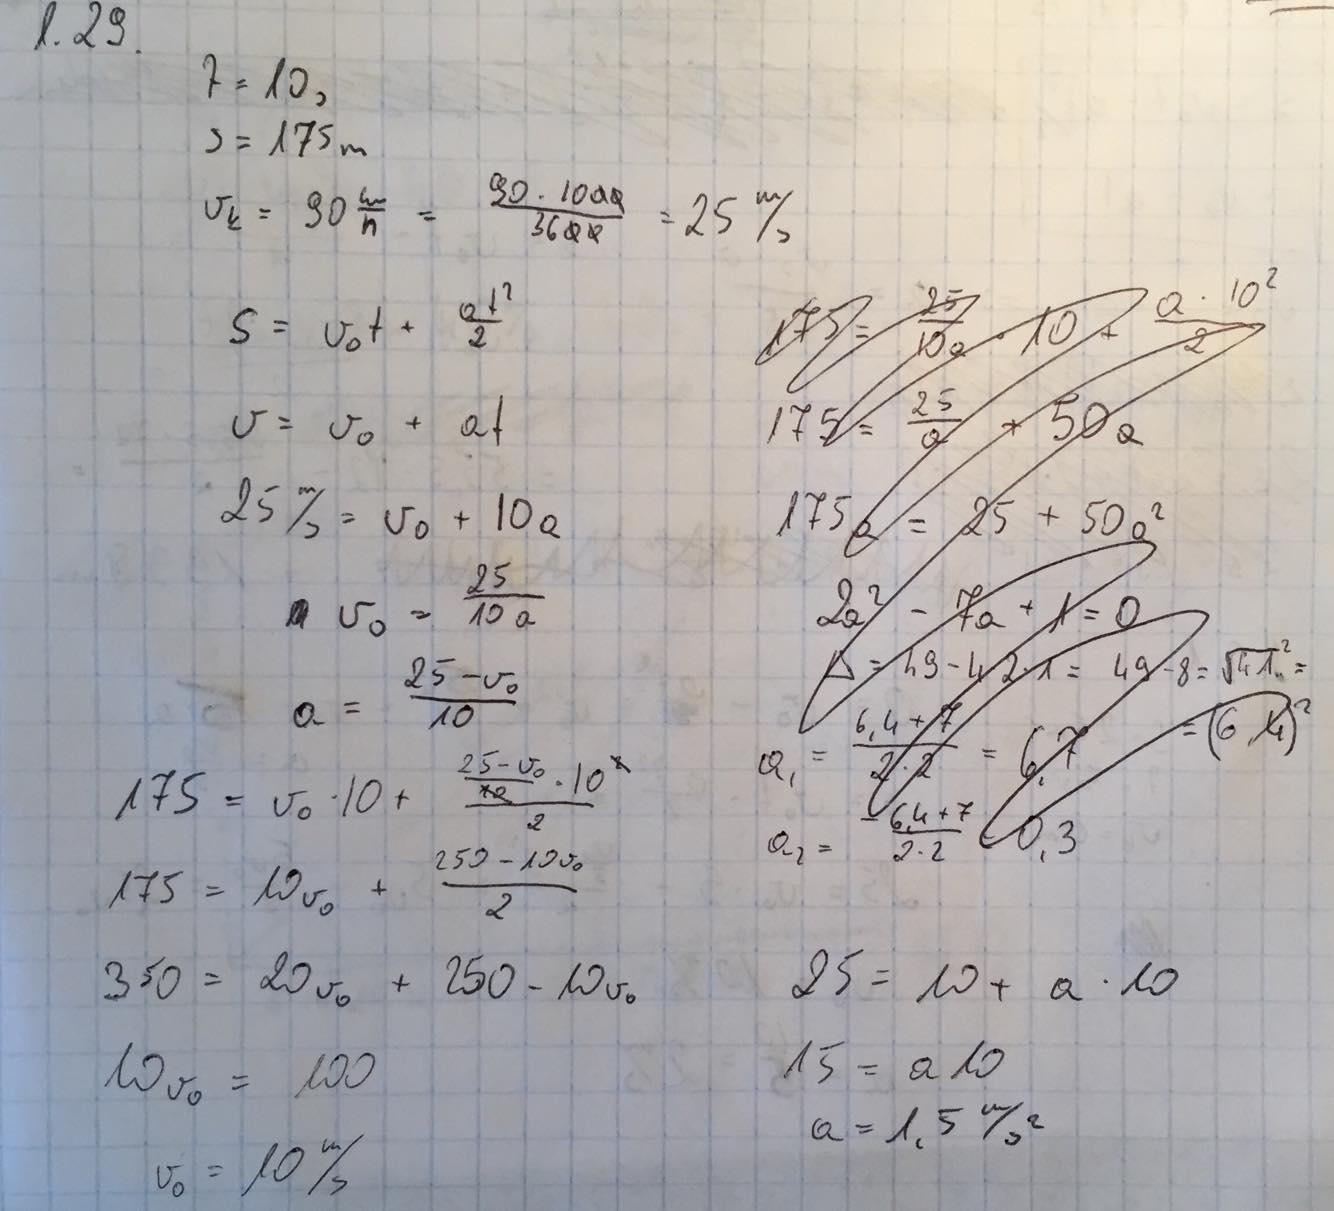 1.29.
T = 10s
s = 175m
v_k = 90 km/h = (90 · 1000)/3600 = 25 m/s
s = v₀t + at²/2
v = v₀ + at
25 m/s = v₀ + 10a
v₀ = 25/10a
a = (25 - v₀)/10
175 = v₀ · 10 + ((25 - v₀)/10 · 10²)/2
175 = 10v₀ + (250 - 10v₀)/2
350 = 20v₀ + 250 - 10v₀
10v₀ = 100
v₀ = 10 m/s
175 = 25/10a · 10 + (a · 10²)/2
175 = 25/a + 50a
175a = 25 + 50a²
2a² - 7a + 1 = 0
Δ = 49 - 4·2·1 = 49 - 8 = √41² =
= (6,4)²
a₁ = (6,4 + 7)/(2·2) = 6,7
a₂ = (-6,4 + 7)/(2·2) = 0,3
25 = 10 + a · 10
15 = a10
a = 1,5 m/s²